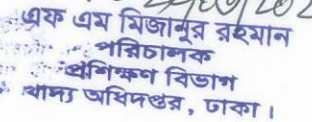 এফ এম মিজানুর রহমান
পরিচালক
প্রশিক্ষণ বিভাগ
খাদ্য অধিদপ্তর, ঢাকা।